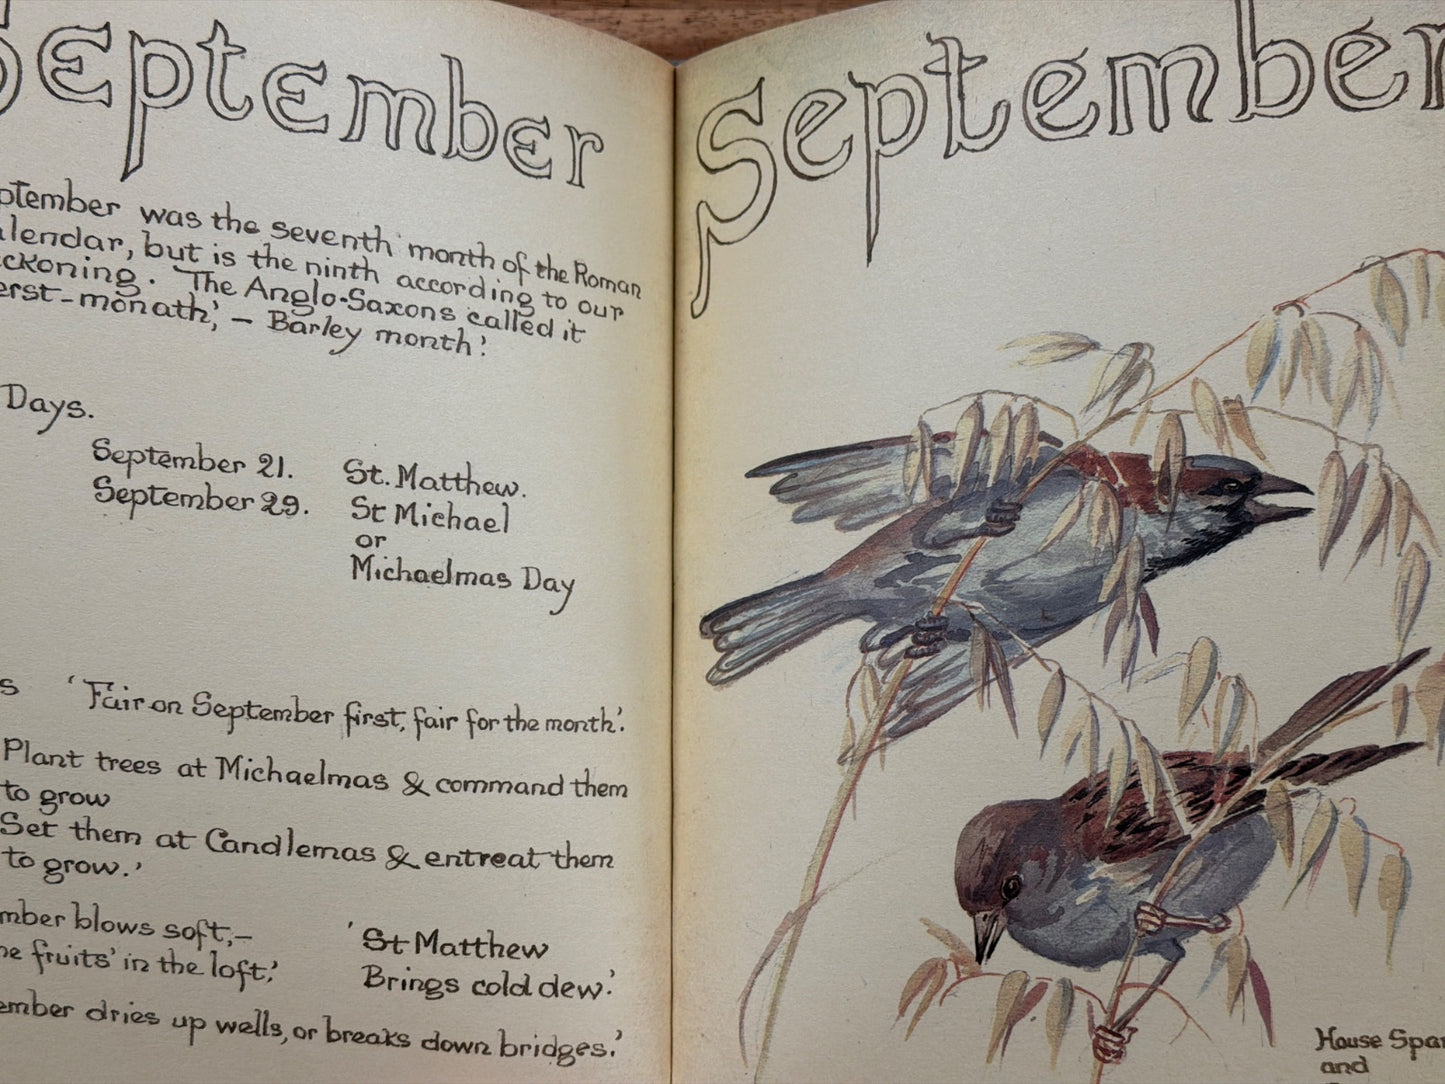 September
ptember was the seventh month of the Roman
alendar, but is the ninth according to our
ckoning. 'The Anglo-Saxons called it
erst-monath', – Barley month'.
Days.
September 21. St. Matthew.
September 29. St Michael
or
Michaelmas Day
s 'Fair on September first, fair for the month'.
Plant trees at Michaelmas & command them
to grow
Set them at Candlemas & entreat them
to grow.'
mber blows soft,–
he fruits' in the loft;'
'St Matthew
Brings cold dew.'
ember dries up wells, or breaks down bridges.'
September
House Spar
and